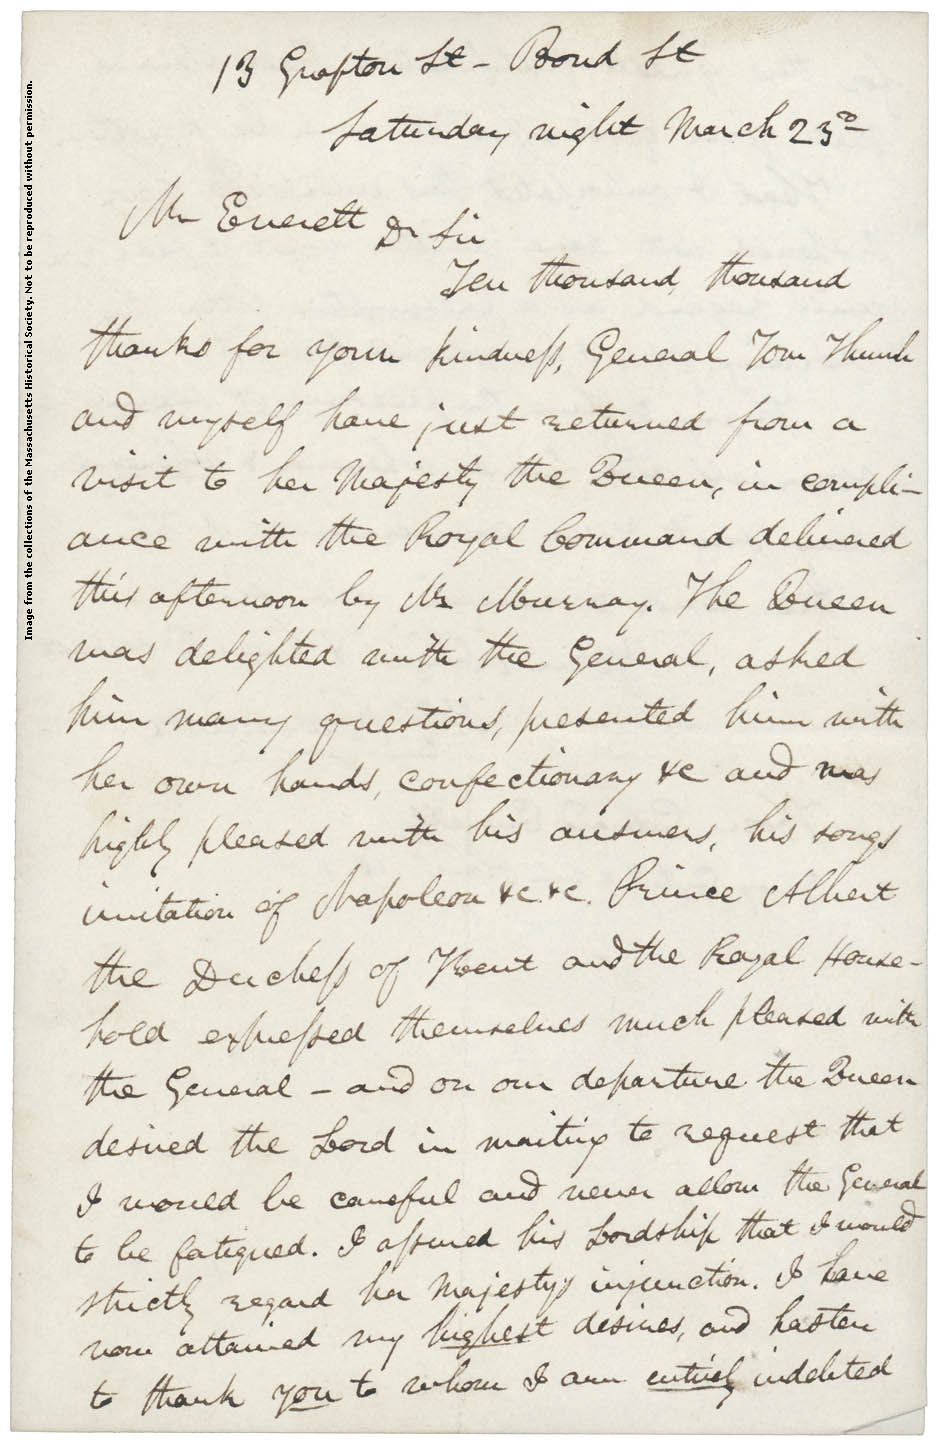 13 Grafton St - Bond St
Saturday night March 23d
Mr Everett Dr Sir
Ten thousand, thousand
thanks for your kindness, General Tom Thumb
and myself have just returned from a
visit to her Majesty the Queen, in compli-
ance with the Royal Command delivered
this afternoon by Mr Murray. The Queen
was delighted with the General, asked
him many questions, presented him with
her own hands, confectionary &c and was
highly pleased with his answers, his songs
imitation of Napoleon &c. &c. Prince Albert
the Duchess of Kent and the Royal House-
hold expressed themselves much pleased with
the General - and on our departure the Queen
desired the Lord in waiting to request that
I would be careful and never allow the General
to be fatigued. I assured his Lordship that I would
strictly regard her Majestys injunction. I have
now attained my highest desires, and hasten
to thank you to whom I am entirely indebted
Image from the collections of the Massachusetts Historical Society. Not to be reproduced without permission.